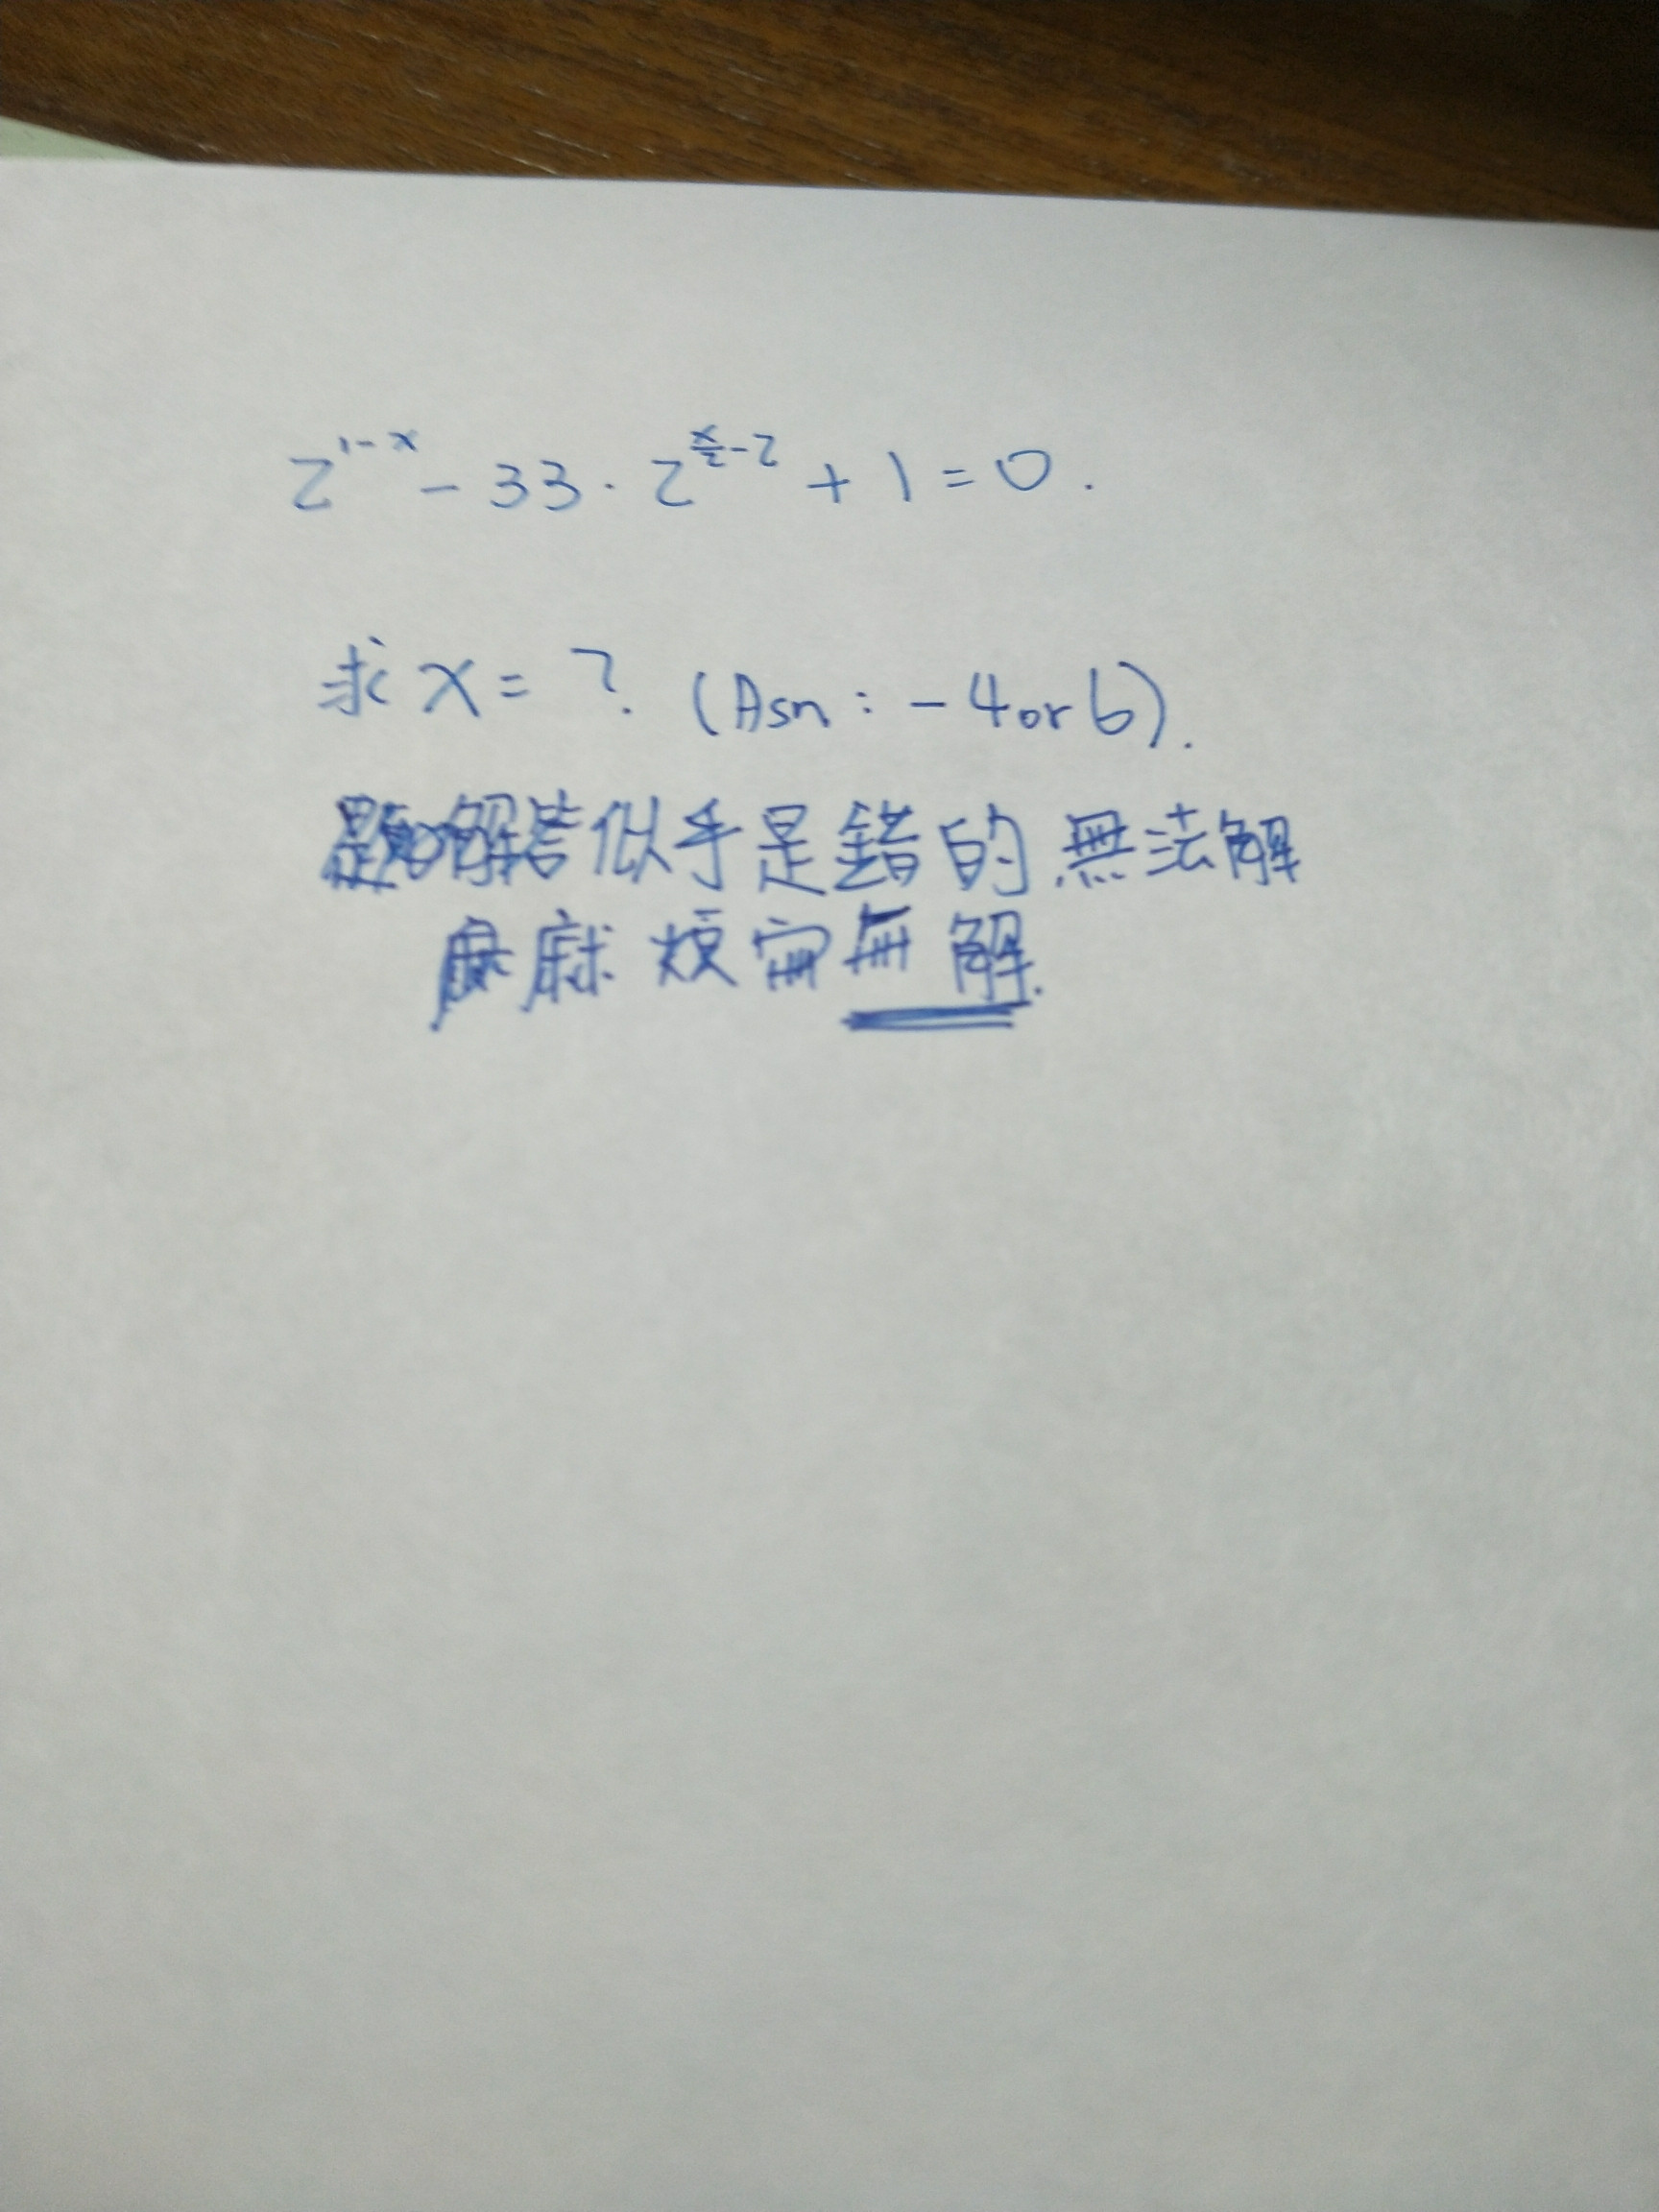 2^{1-x} - 33 · 2^{x/2-2} + 1 = 0.
求 x = ? (Asn : -4 or 6).
解答似乎是錯的.無法解
麻煩 無解.